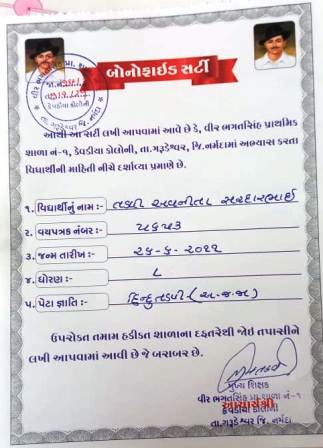 બોનોફાઇડ સર્ટી
આથી આ સર્ટી લખી આપવામાં આવે છે કે, વીર ભગતસિંહ પ્રાથમિક
શાળા નં-૧, કેવડીયા કોલોની, તા.ગરૂડેશ્વર, જિ.નર્મદામાં અભ્યાસ કરતા
વિધાર્થીની માહિતી નીચે દર્શાવ્યા પ્રમાણે છે.
૧. વિદ્યાર્થીનું નામ :- તડવી અવનીતા સરદારભાઈ
૨. વયપત્રક નંબર :-
૩. જન્મ તારીખ :-
૪. ધોરણ :- ૮
૫. પેટા જ્ઞાતિ :- હિન્દુ તડવી (અ.જ.જા)
ઉપરોક્ત તમામ હકીકત શાળાના દફતરેથી જોઈ તપાસીને
લખી આપવામાં આવી છે જે બરાબર છે.
મુખ્ય શિક્ષક
વીર ભગતસિંહ પ્રા. શાળા નં-૧
આચાર્યશ્રી
કેવડીયા કોલોની
તા.ગરૂડેશ્વર જિ. નર્મદા